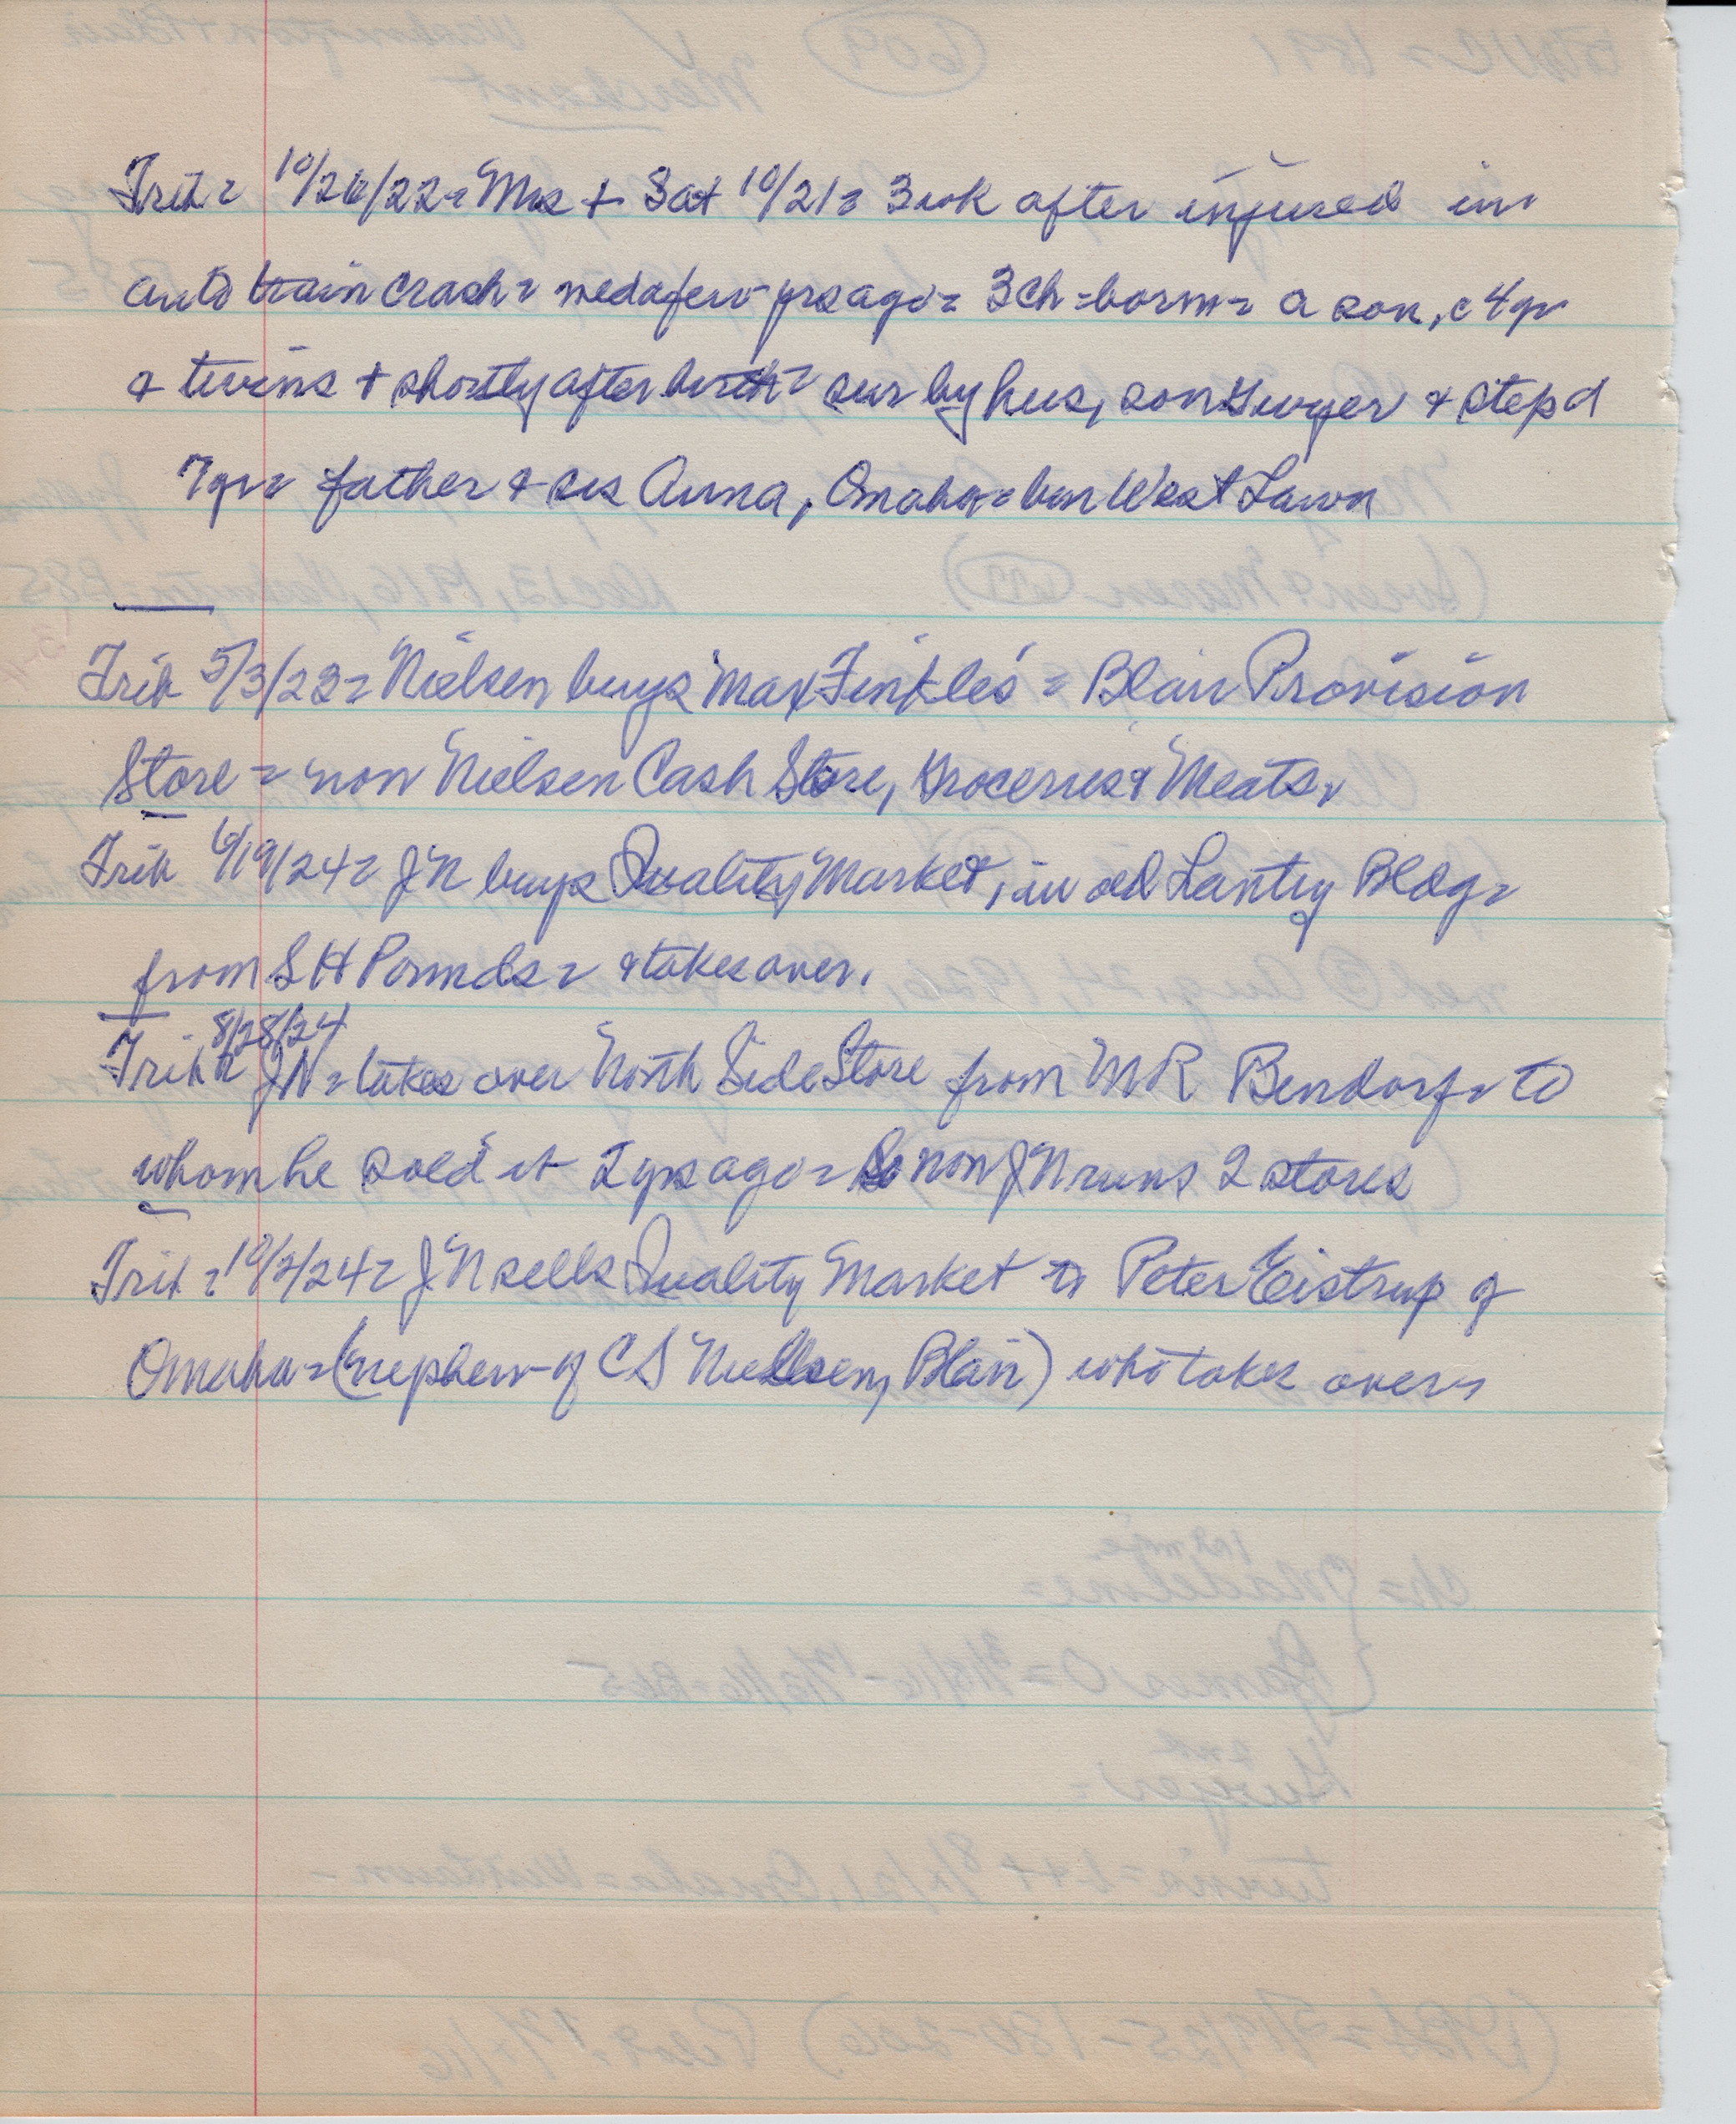 Trib = 10/26/22 = Mrs + Sat 10/21 = 3 wk after injured in
auto train crash = wed a few yrs ago = 3 ch = born = a son, c 4 yr
& twins + shortly after birth = sur by hus, son Guyer & step d
7 yr = father & sis Anna, Omaha = bur West Lawn
Trib 5/3/23 = Nielsen buys Max Finkle's = Blair Provision
Store = now Nielsen Cash Store, Groceries & Meats.
Trib 6/19/24 = JN buys Quality Market, in old Lantry Bldg =
from S H Pounds = & takes over.
Trib = 8/28/24 JN = takes over North Side Store from M R Bendorf = to
whom he sold it 2 yrs ago = So now JN runs 2 stores
Trib = 10/2/24 = JN sells Quality Market to Peter Eistrup of
Omaha = (nephew of C S Nielsen, Blair) who takes over =